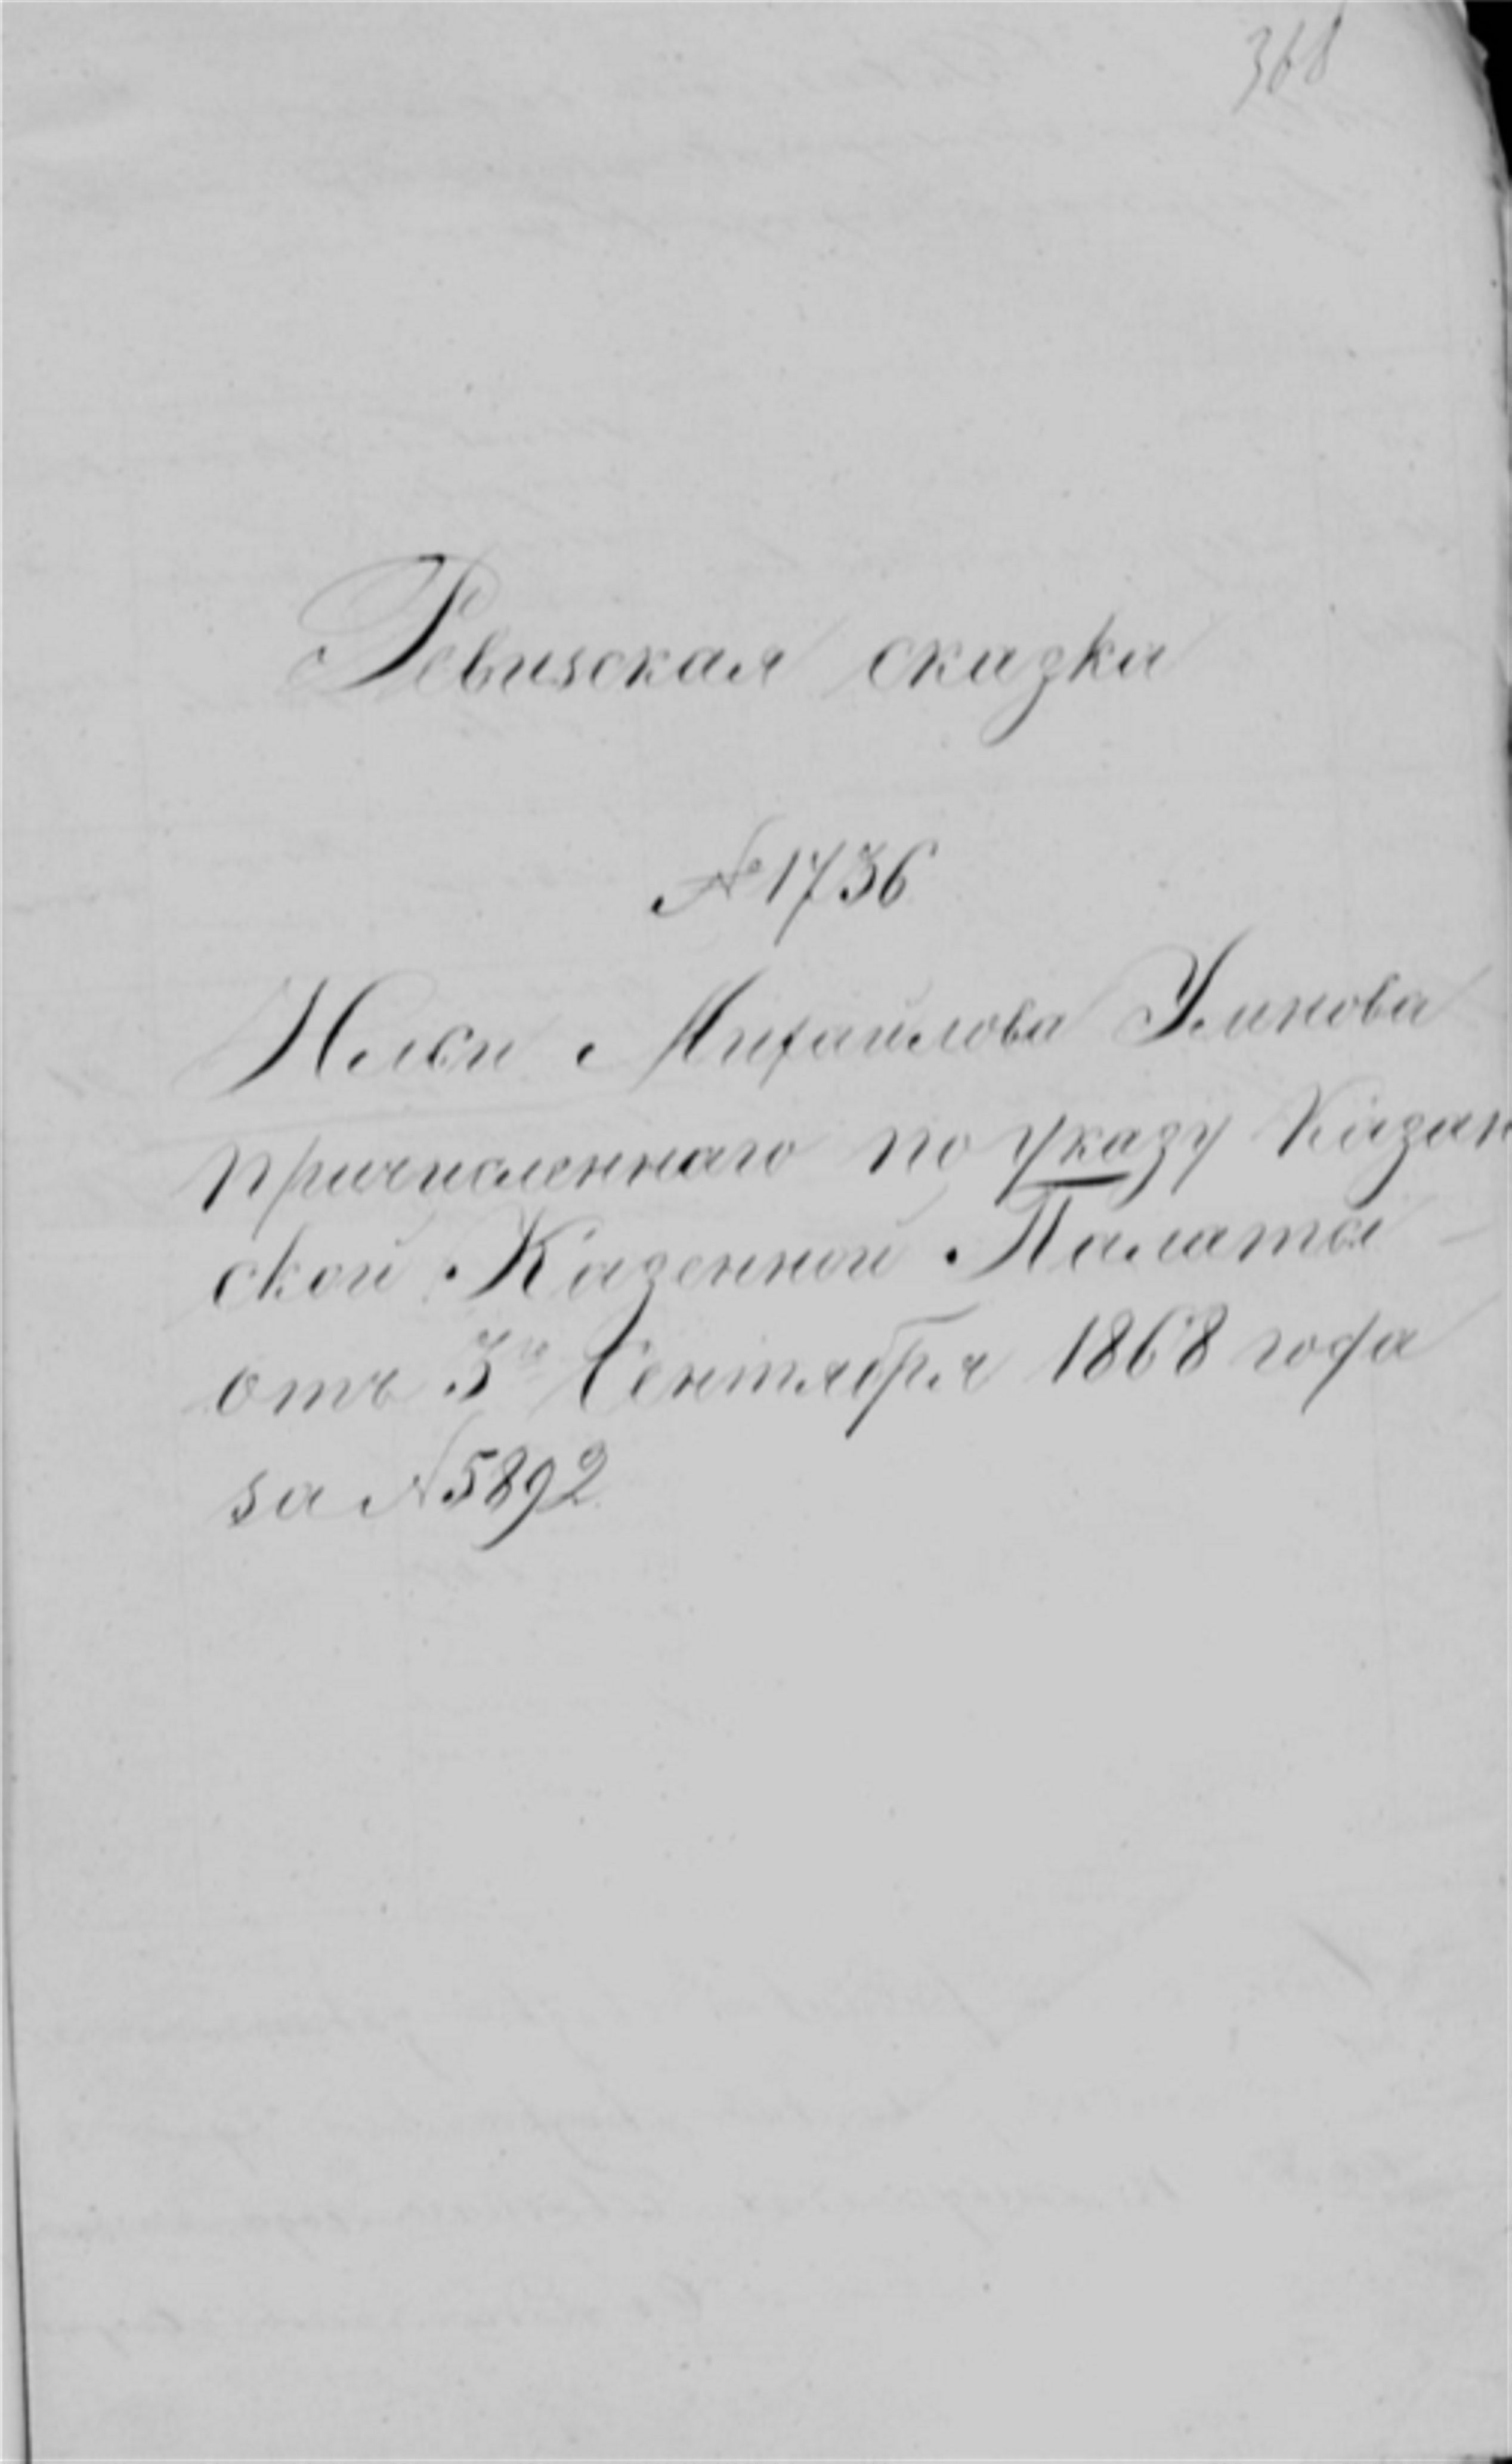 368
Ревизская сказка
№ 1736
Ильи Михайлова Улинова
причисленнаго по указу Казан
ской Казенной Палаты
отъ 3го Сентября 1868 года
за № 5892